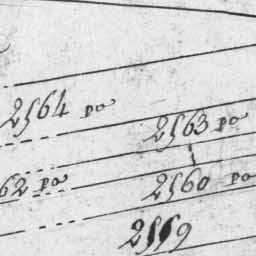 2564 po
2563 po
62 po
2560 po
2559